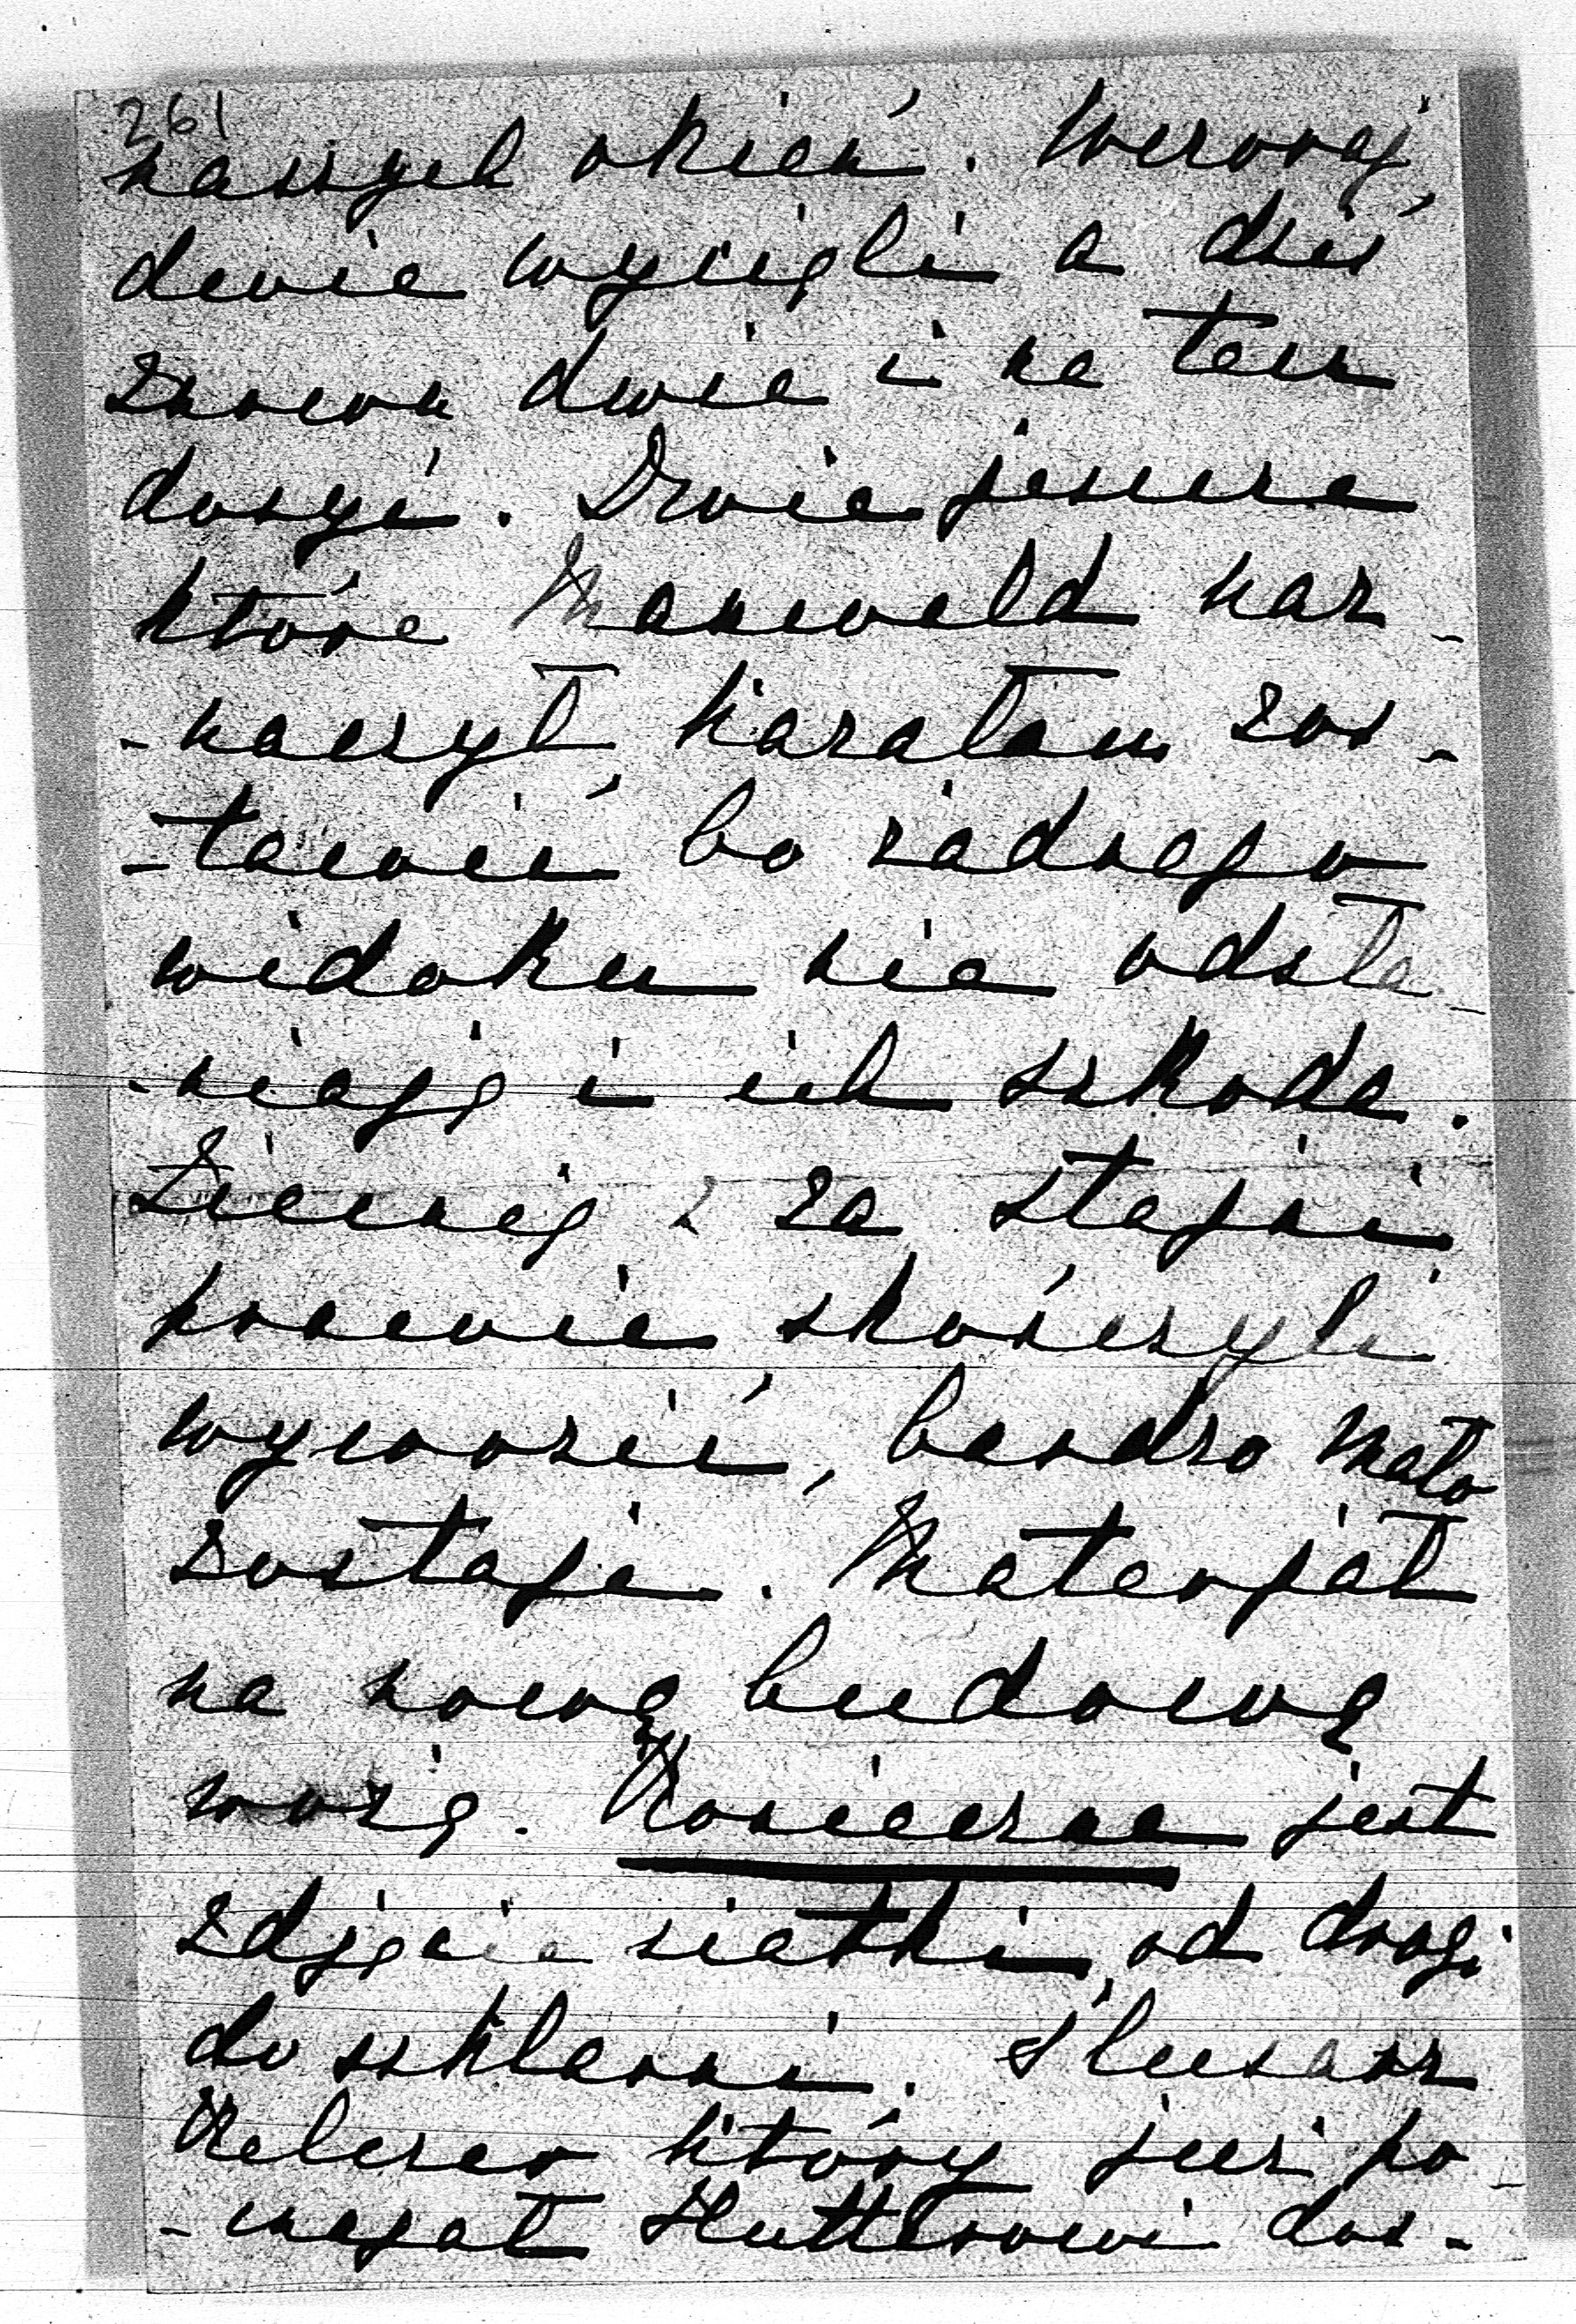 261
naszych okień. Wczoraj
dwie wycięli a dziś
znowu dwie i na tem
dosyć. Dwie jeszcze
które Maxwald naz-
-naczył, kazałam zos-
-tawić bo żadnego
widoku nie odsła-
-niają i ich szkoda.
Ziemię z za stajni
prawie skończyli
wywozić, bardzo mało
zostaje. Materjał
na nową budowę
wożą. Konieczne jest
zdjęcie siatki od drogi
do szklarni. Ślusarz
Kelczer który już po-
-magał Hutterowi dos-